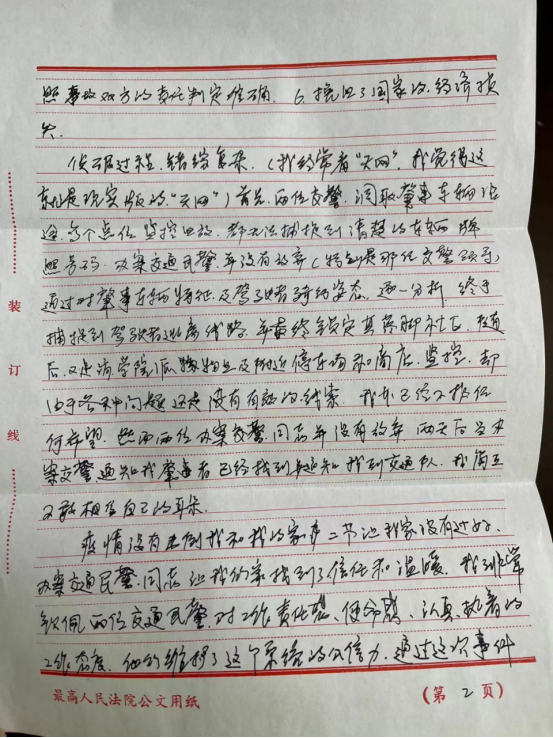 照事故双方的责任判定准确. 6. 挽回了国家的.经济损
失.
侦破过程.错综复杂.(我经常看“天网”.我觉得这
就是现实版的.“天网”)首先.两位交警.调取肇事车辆沿
途.每个点位监控回放.都无法捕捉到清楚的车辆牌
照号码.办案交通民警.并没有放弃(特别是那位交警领导)
通过对肇事车辆特征及驾驶者骑行姿态.逐一分析.终于
捕捉到驾驶者逃离线路.并最终锁定其落脚社区.随
后.又走访学院派物业及附近停车场和商店.监控.却
由于各种问题还是没有有效的线索.我本已经不抱任
何希望.然而两位办案交警.同志并没有放弃.两天后当办
案交警通知我肇事者已经找到通知我到交通队.我简直
不敢相信自己的耳朵.
疫情没有击倒我和我的家.
办案交通民警.同志让我们找到了信任和温暖.我非常
钦佩.两位交通民警.对工作责任感、使命感、认真执着的
工作态度.他们维护了这个系统的公信力.通过这次事件
装
订
线
最高人民法院公文用纸
(第 2 页)